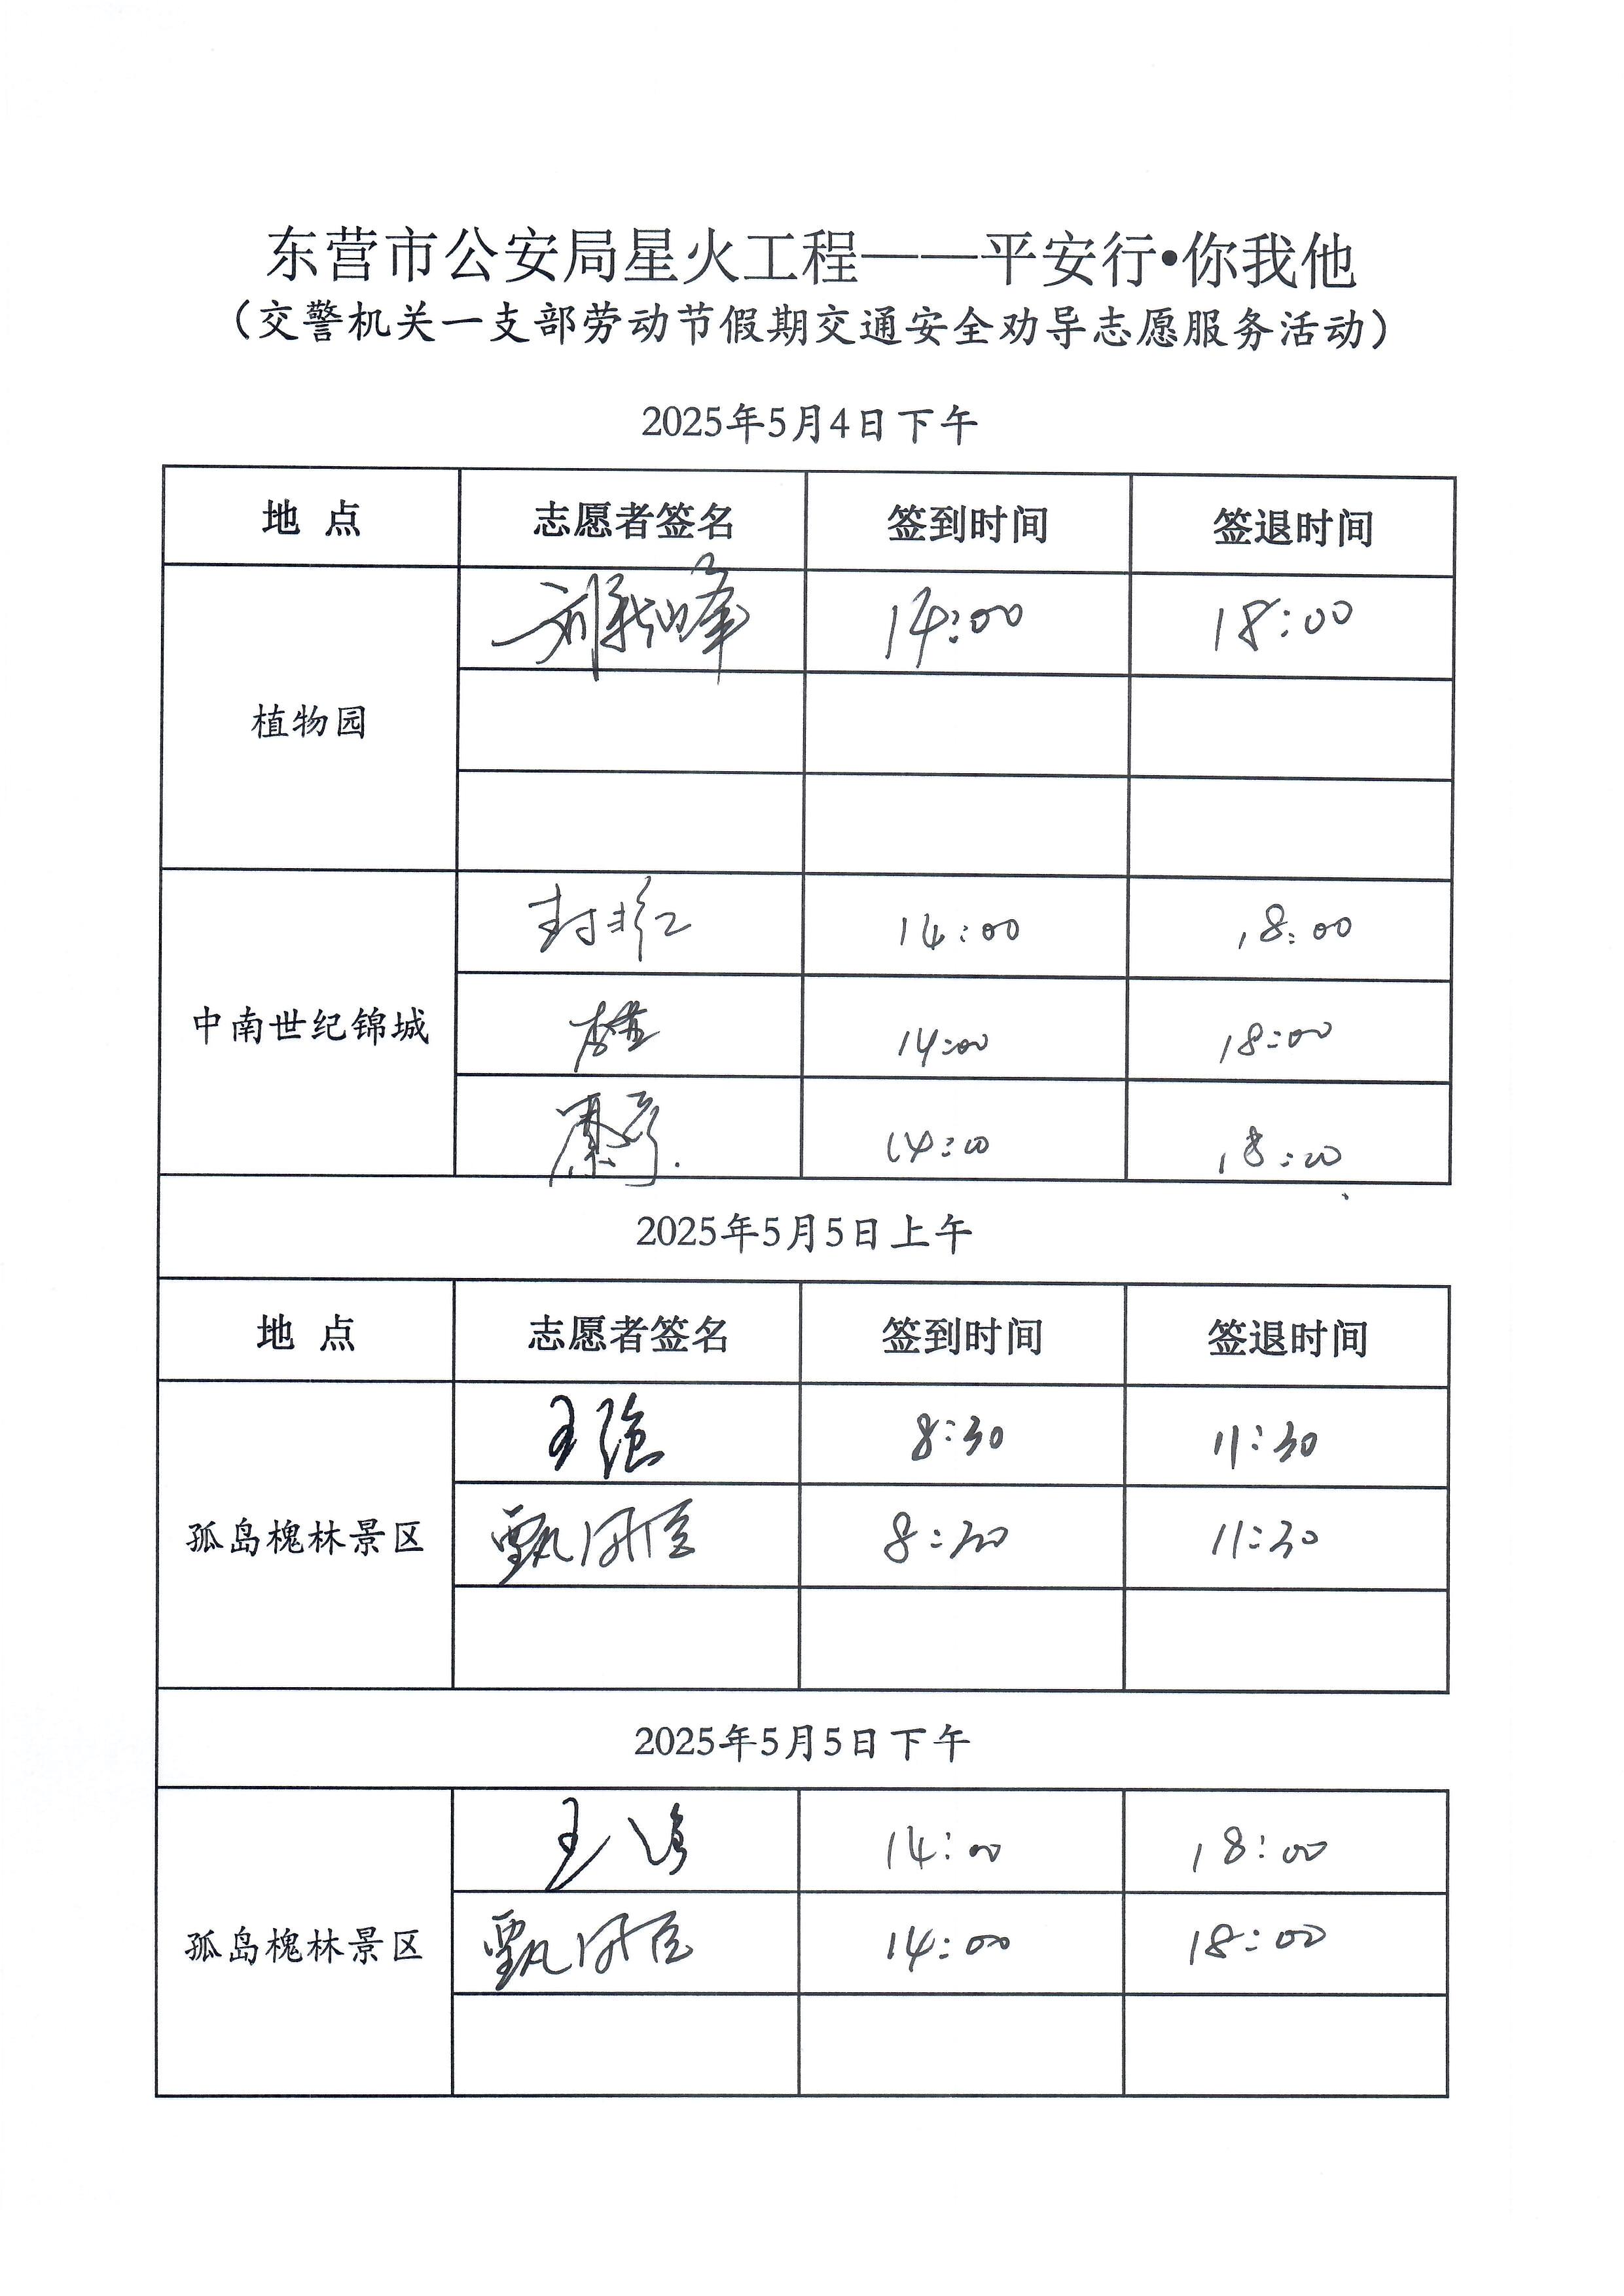 东营市公安局星火工程——平安行•你我他
（交警机关一支部劳动节假期交通安全劝导志愿服务活动）
2025年5月4日下午
地 点 志愿者签名 签到时间 签退时间
植物园 14:00 18:00
中南世纪锦城
封 红 14:00 18:00
14:00 18:00
秦 14:00 18:00
2025年5月5日上午
地 点 志愿者签名 签到时间 签退时间
孤岛槐林景区
王强 8:30 11:30
甄 8:30 11:30
2025年5月5日下午
孤岛槐林景区
王 14:00 18:00
甄 14:00 18:00